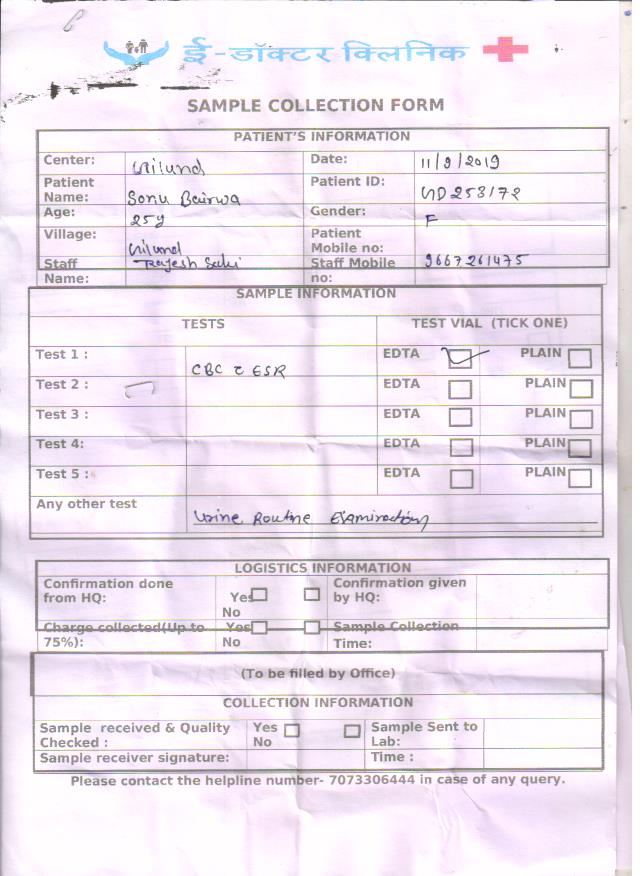 ई-डॉक्टर क्लिनिक
SAMPLE COLLECTION FORM
PATIENT'S INFORMATION
Center: Gilund Date: 11/9/2019
Patient Name: Sonu Bairwa Patient ID:
Age: 25y Gender: F
Village: Gilund Patient Mobile no:
Staff Name: Rajesh Staff Mobile no: 9667261475
SAMPLE INFORMATION
TESTS TEST VIAL (TICK ONE)
Test 1 : CBC ESR EDTA PLAIN
Test 2 : EDTA PLAIN
Test 3 : EDTA PLAIN
Test 4: EDTA PLAIN
Test 5 : EDTA PLAIN
Any other test Urine Routine Examination
LOGISTICS INFORMATION
Confirmation done from HQ: Yes No Confirmation given by HQ:
Charge collected(Up to 75%): Yes No Sample Collection Time:
(To be filled by Office)
COLLECTION INFORMATION
Sample received & Quality Checked : Yes No Sample Sent to Lab:
Sample receiver signature: Time :
Please contact the helpline number- 7073306444 in case of any query.